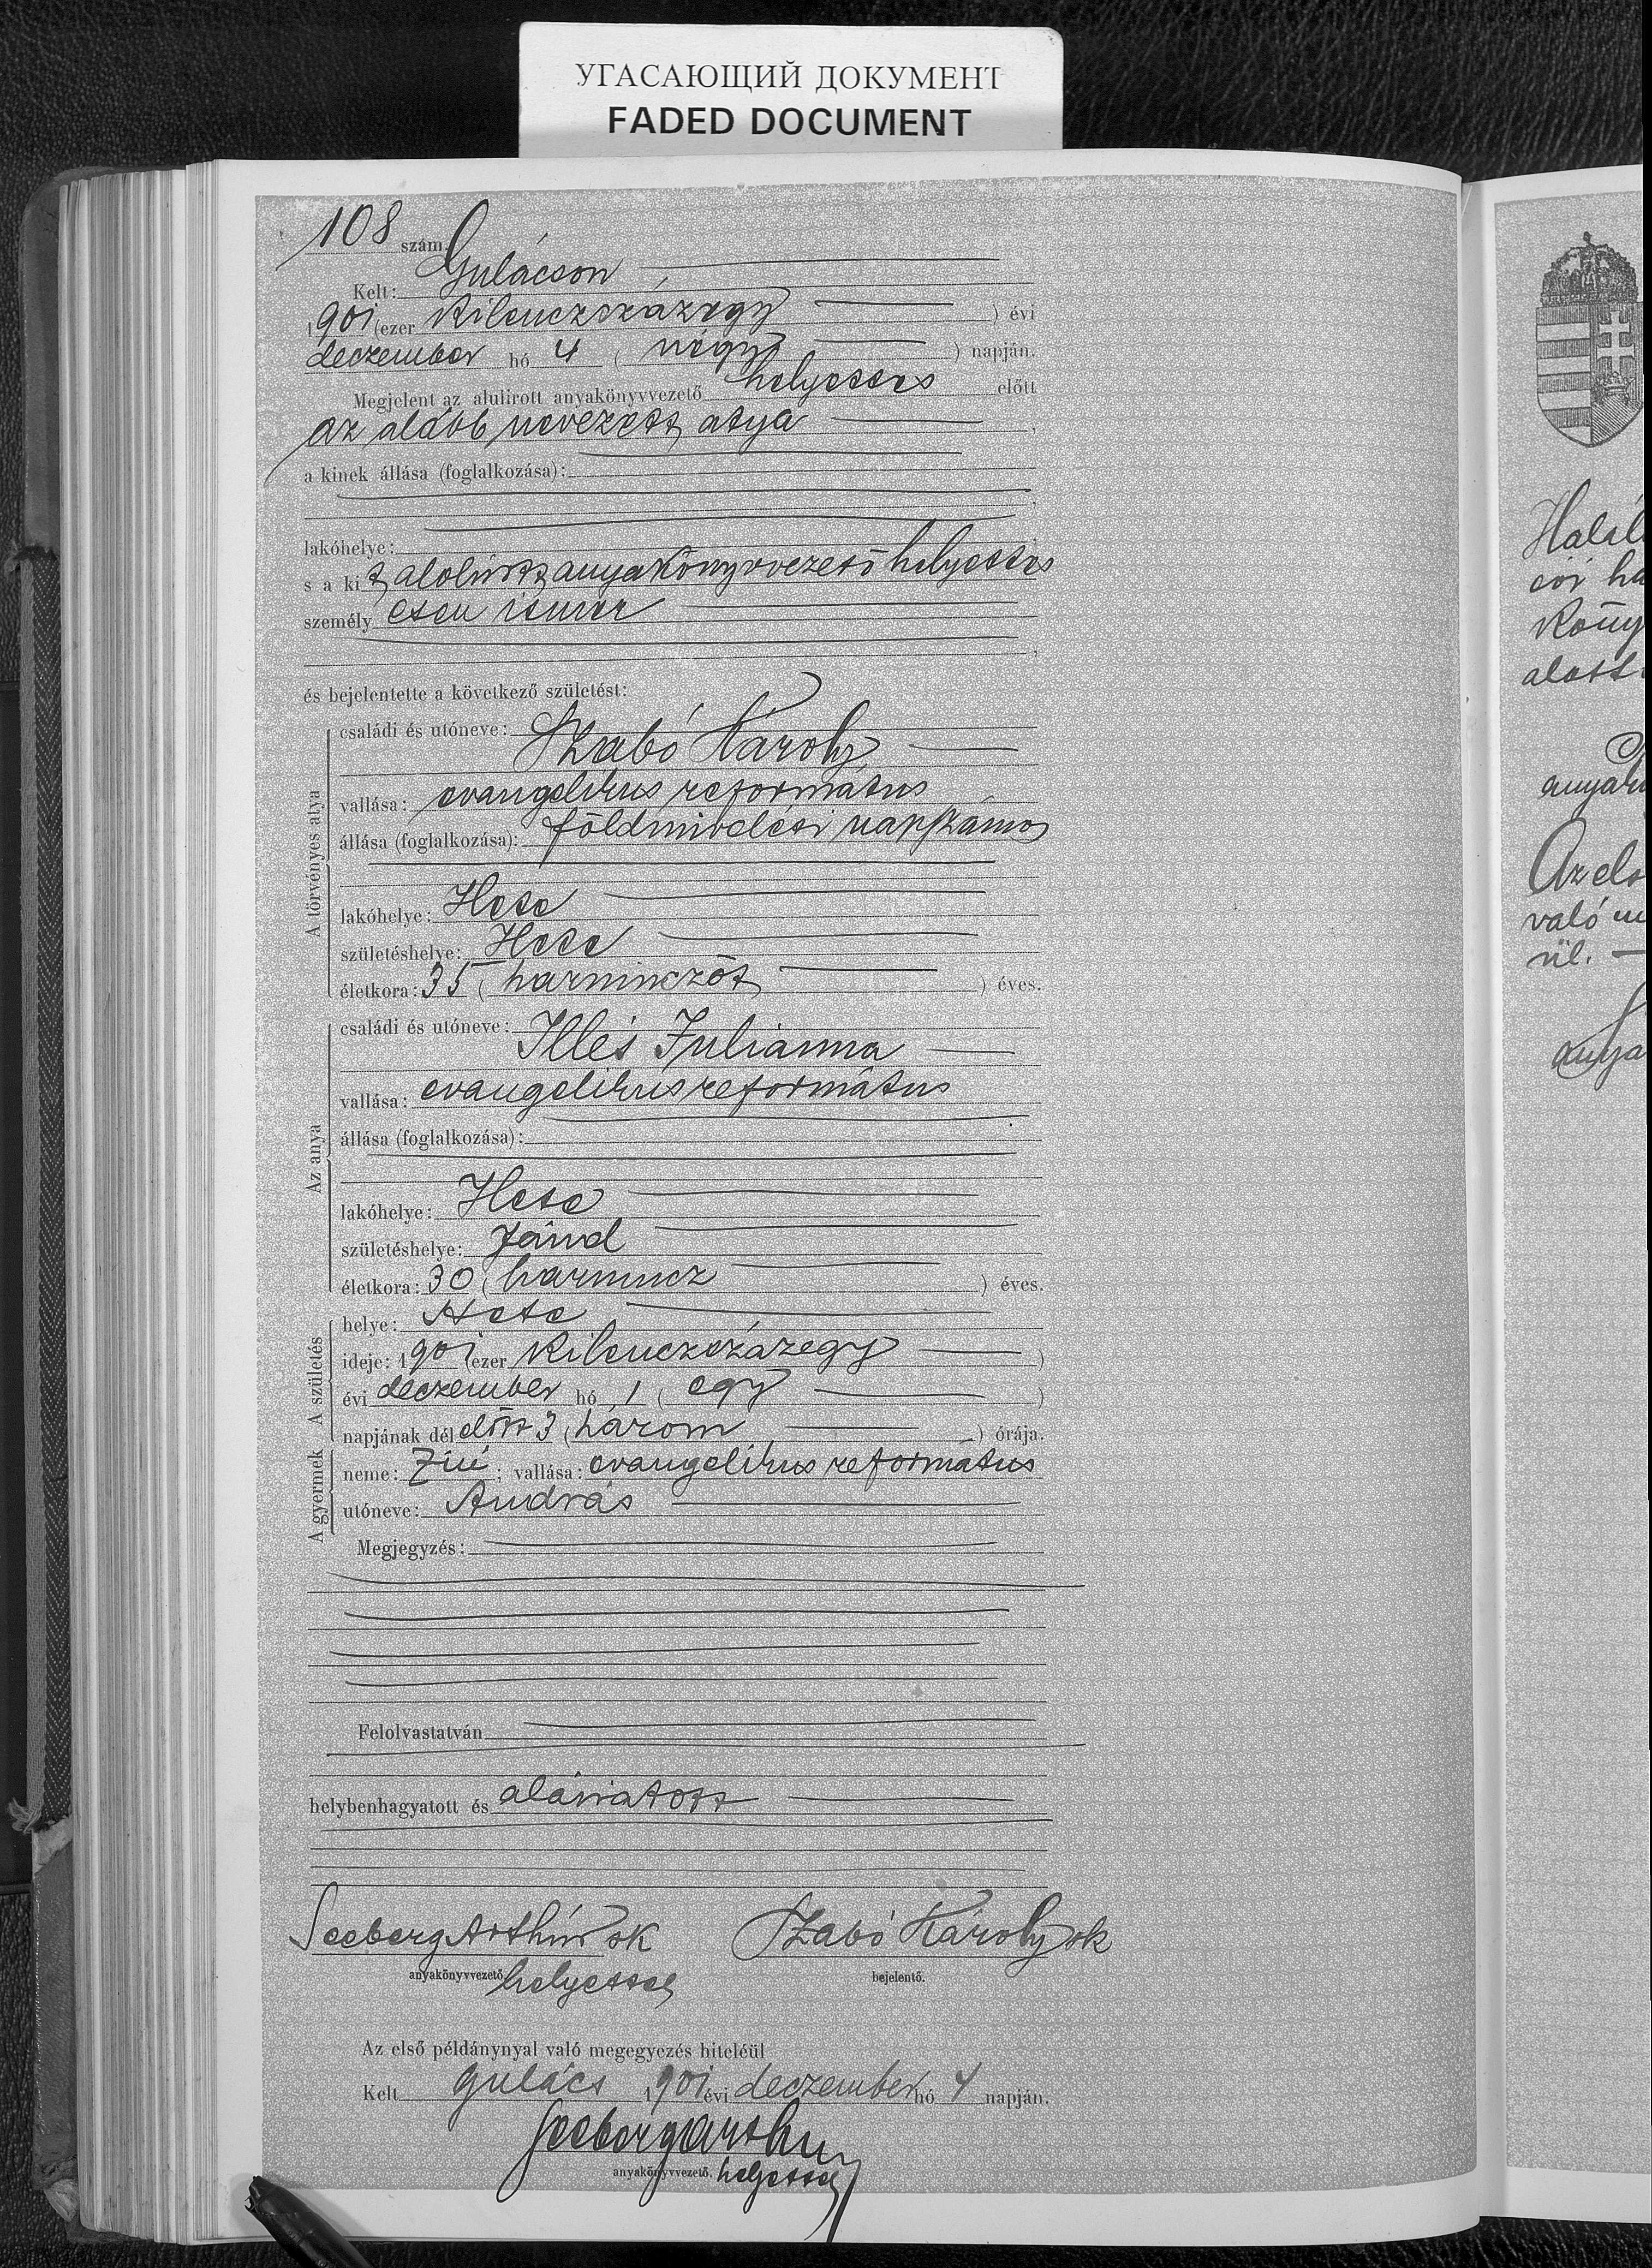 УГАСАЮЩИЙ ДОКУМЕНТ
FADED DOCUMENT
108 szám.
Kelt: Gulácson
1901 (ezer kilenczszázegy ) évi
deczember hó 4 ( négy ) napján.
Megjelent az alulirott anyakönyvvezető helyettes előtt
az alább nevezett atya ,
a kinek állása (foglalkozása):
lakóhelye:
s a kit alolírott anyakönyvvezető helyettes
személyesen ismer
és bejelentette a következő születést:
A törvényes atya
családi és utóneve: Szabó Károly
vallása: evangelikus református
állása (foglalkozása): földmivelési napszámos
lakóhelye: Hete
születéshelye: Hete
életkora: 35 ( harminczöt ) éves.
Az anya
családi és utóneve: Illés Juliánna
vallása: evangelikus református
állása (foglalkozása):
lakóhelye: Hete
születéshelye: Jánd
életkora: 30 ( harmincz ) éves.
A születés
helye: Hete
ideje: 1901 (ezer kilenczszázegy )
évi deczember hó 1 ( egy )
napjának délelőtt 3 ( három ) órája.
A gyermek
neme: Fiú; vallása: evangelikus református
utóneve: András
Megjegyzés:
Felolvastatván
helybenhagyatott és aláiratott
Seeberg Arthúr sk Szabó Károly sk
anyakönyvvezető helyettes bejelentő.
Az első példánynyal való megegyezés hiteléül
Kelt Gulács 1901 évi deczember hó 4 napján.
Seeberg Arthur
anyakönyvvezető. helyettes
Halál
évi
köny
alatt
anyak
Az els
való m
ül.
anya